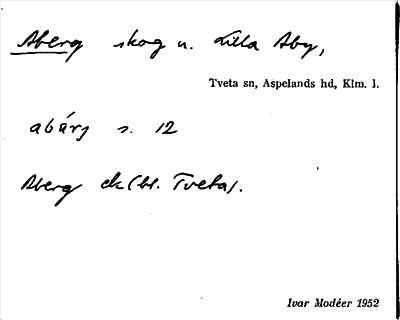 Aberg skog u. Lilla Aby,
Tveta sn, Aspelands hd, Klm. l.
abárj s. 12
Aberg ek (bl. Tveta).
Ivar Modéer 1952